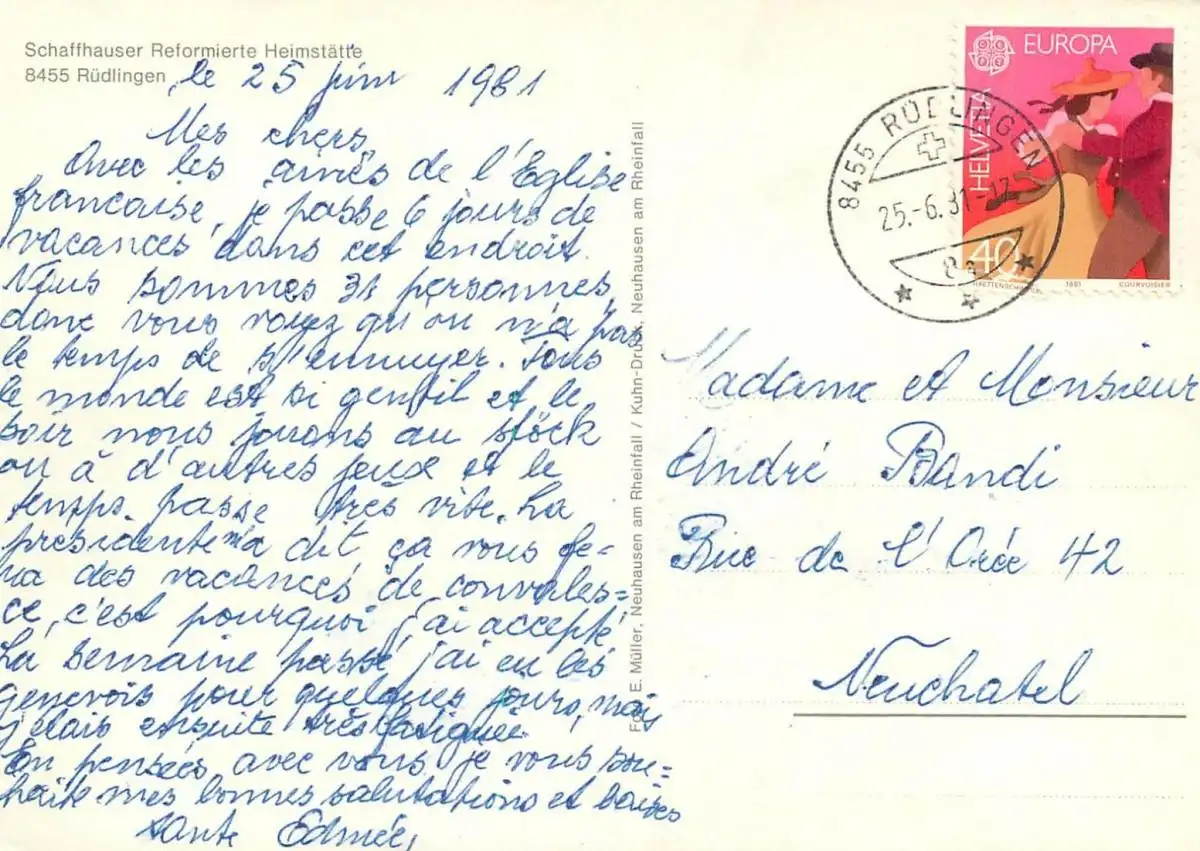 Schaffhauser Reformierte Heimstätte
8455 Rüdlingen
le 25 juin 1981
Mes chers,
Avec les ainés de l'Eglise
francaise, je passe 6 jours de
vacances dans cet endroit.
Nous sommes 31 personnes,
donc vous voyez qu'on n'a pas
le temps de s'ennuyer. Tous
le monde est si gentil et le
soir nous jouons au stöck
ou à d'autres jeux et le
temps passe très vite. La
présidente m'a dit ça vous fe-
ra des vacances de convales=
ce, c'est pourquoi j'ai accepté
La semaine passé j'ai eu les
genevois pour quelques jours, mais
j'étais ensuite très fatiguée.
En pensées avec vous je vous sou=
haite mes bonnes salutations et baises
tante Edmée,
E. Müller, Neuhausen am Rheinfall / Kuhn-Druck, Neuhausen am Rheinfall
EUROPA
HELVETIA
40
1981
COURVOISIER
8455 RÜDLINGEN
25.-6.81-17
Madame et Monsieur
André Bandi
Rue de l'Orée 42
Neuchatel